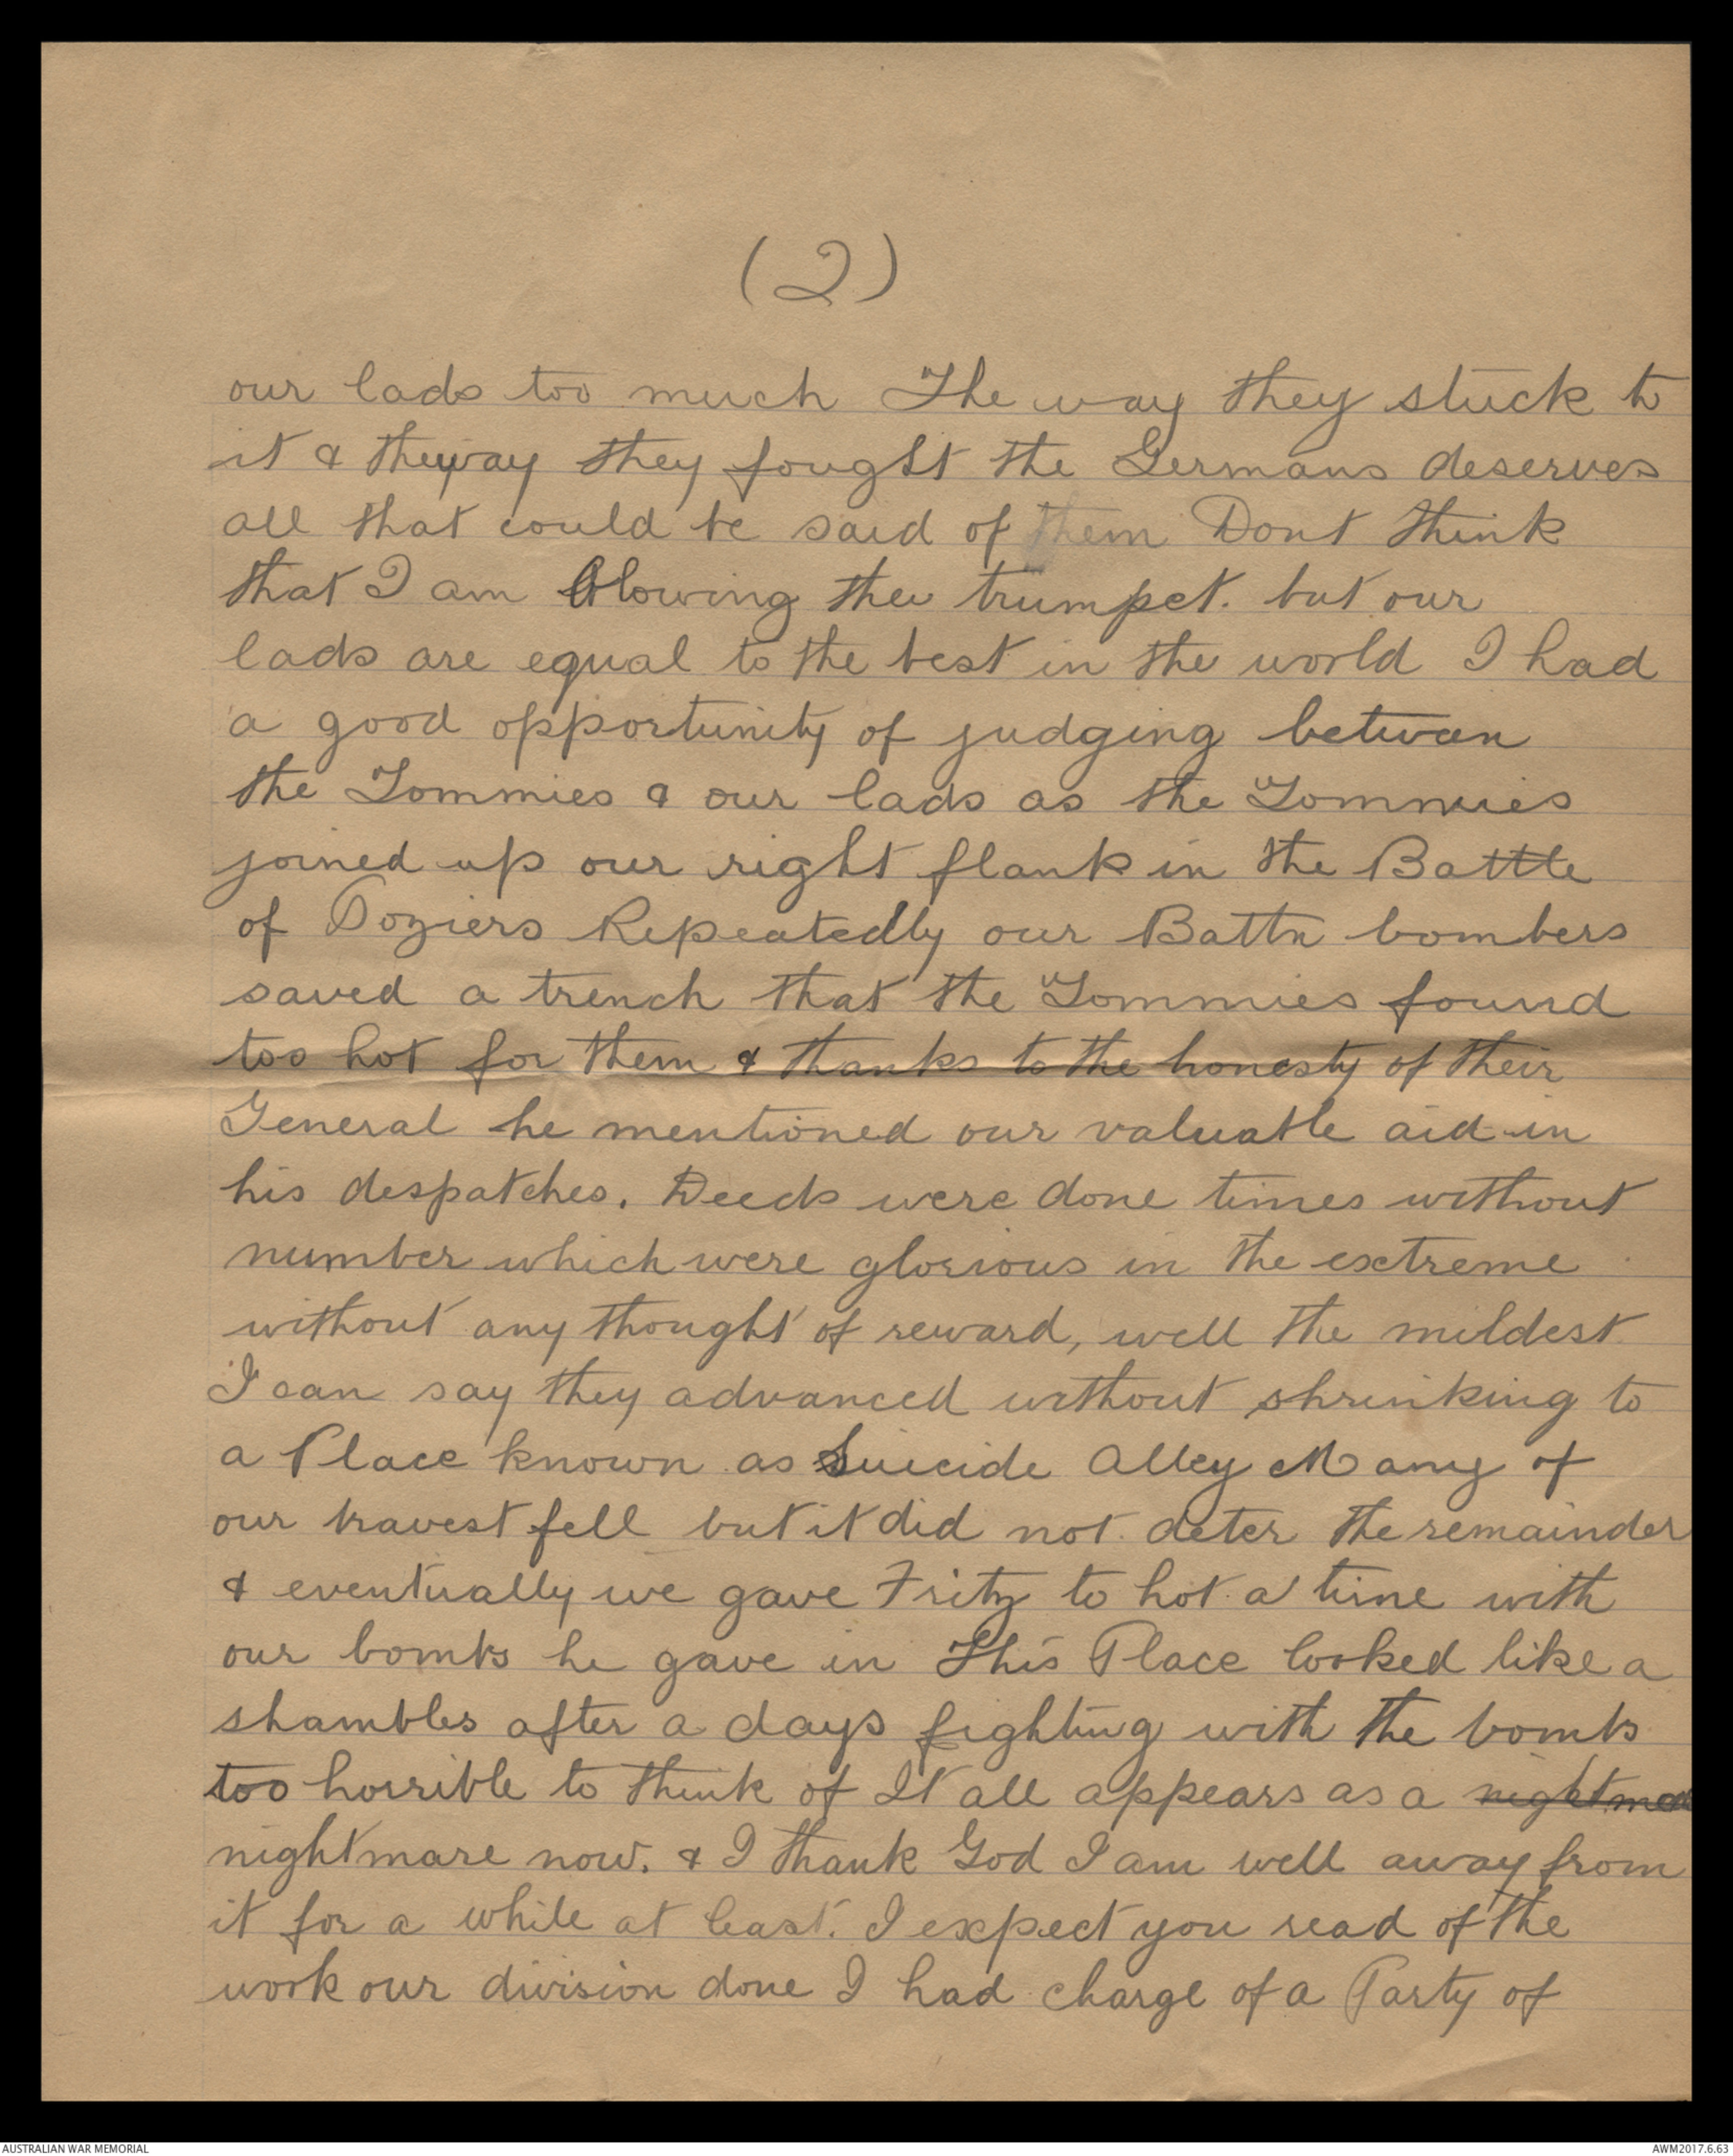 (2)
our lads too much The way they stuck to
it & the way they fought the Germans deserves
all that could be said of them Dont think
that I am blowing the trumpet. but our
lads are equal to the best in the world I had
a good opportunity of judging between
the Tommies & our lads as the Tommies
joined up our right flank in the Battle
of Poziers Repeatedly our Battn bombers
saved a trench that the Tommies found
too hot for them & thanks to the honesty of their
General he mentioned our valuable aid in
his despatches. Deeds were done times without
number which were glorious in the extreme
without any thought of reward, well the mildest
I can say they advanced without shrinking to
a Place known as Suicide Alley Many of
our bravest fell but it did not deter the remainder
& eventually we gave Fritz to hot a time with
our bombs he gave in This Place looked like a
shambles after a days fighting with the bombs
too horrible to think of It all appears as a nightmar
nightmare now. & I thank God I am well away from
it for a while at least. I expect you read of the
work our division done I had charge of a Party of
AUSTRALIAN WAR MEMORIAL
AWM2017.6.63